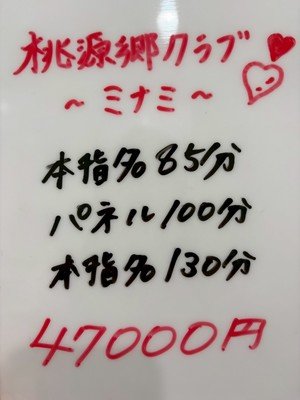 桃源郷クラブ
~ミナミ~
本指名85分
パネル100分
本指名130分
47000円